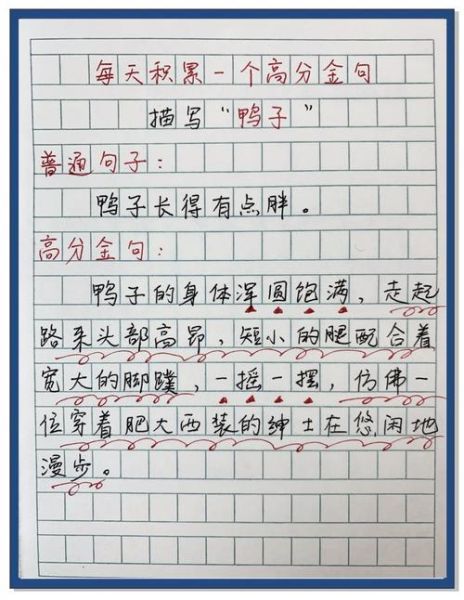 每天积累一个高分金句
描写“鸭子”
普通句子：
鸭子长得有点胖。
高分金句：
鸭子的身体浑圆饱满，走起
路来头部高昂，短小的腿配合着
宽大的脚蹼，一摇一摆，仿佛一
位穿着肥大西装的绅士在悠闲地
漫步。